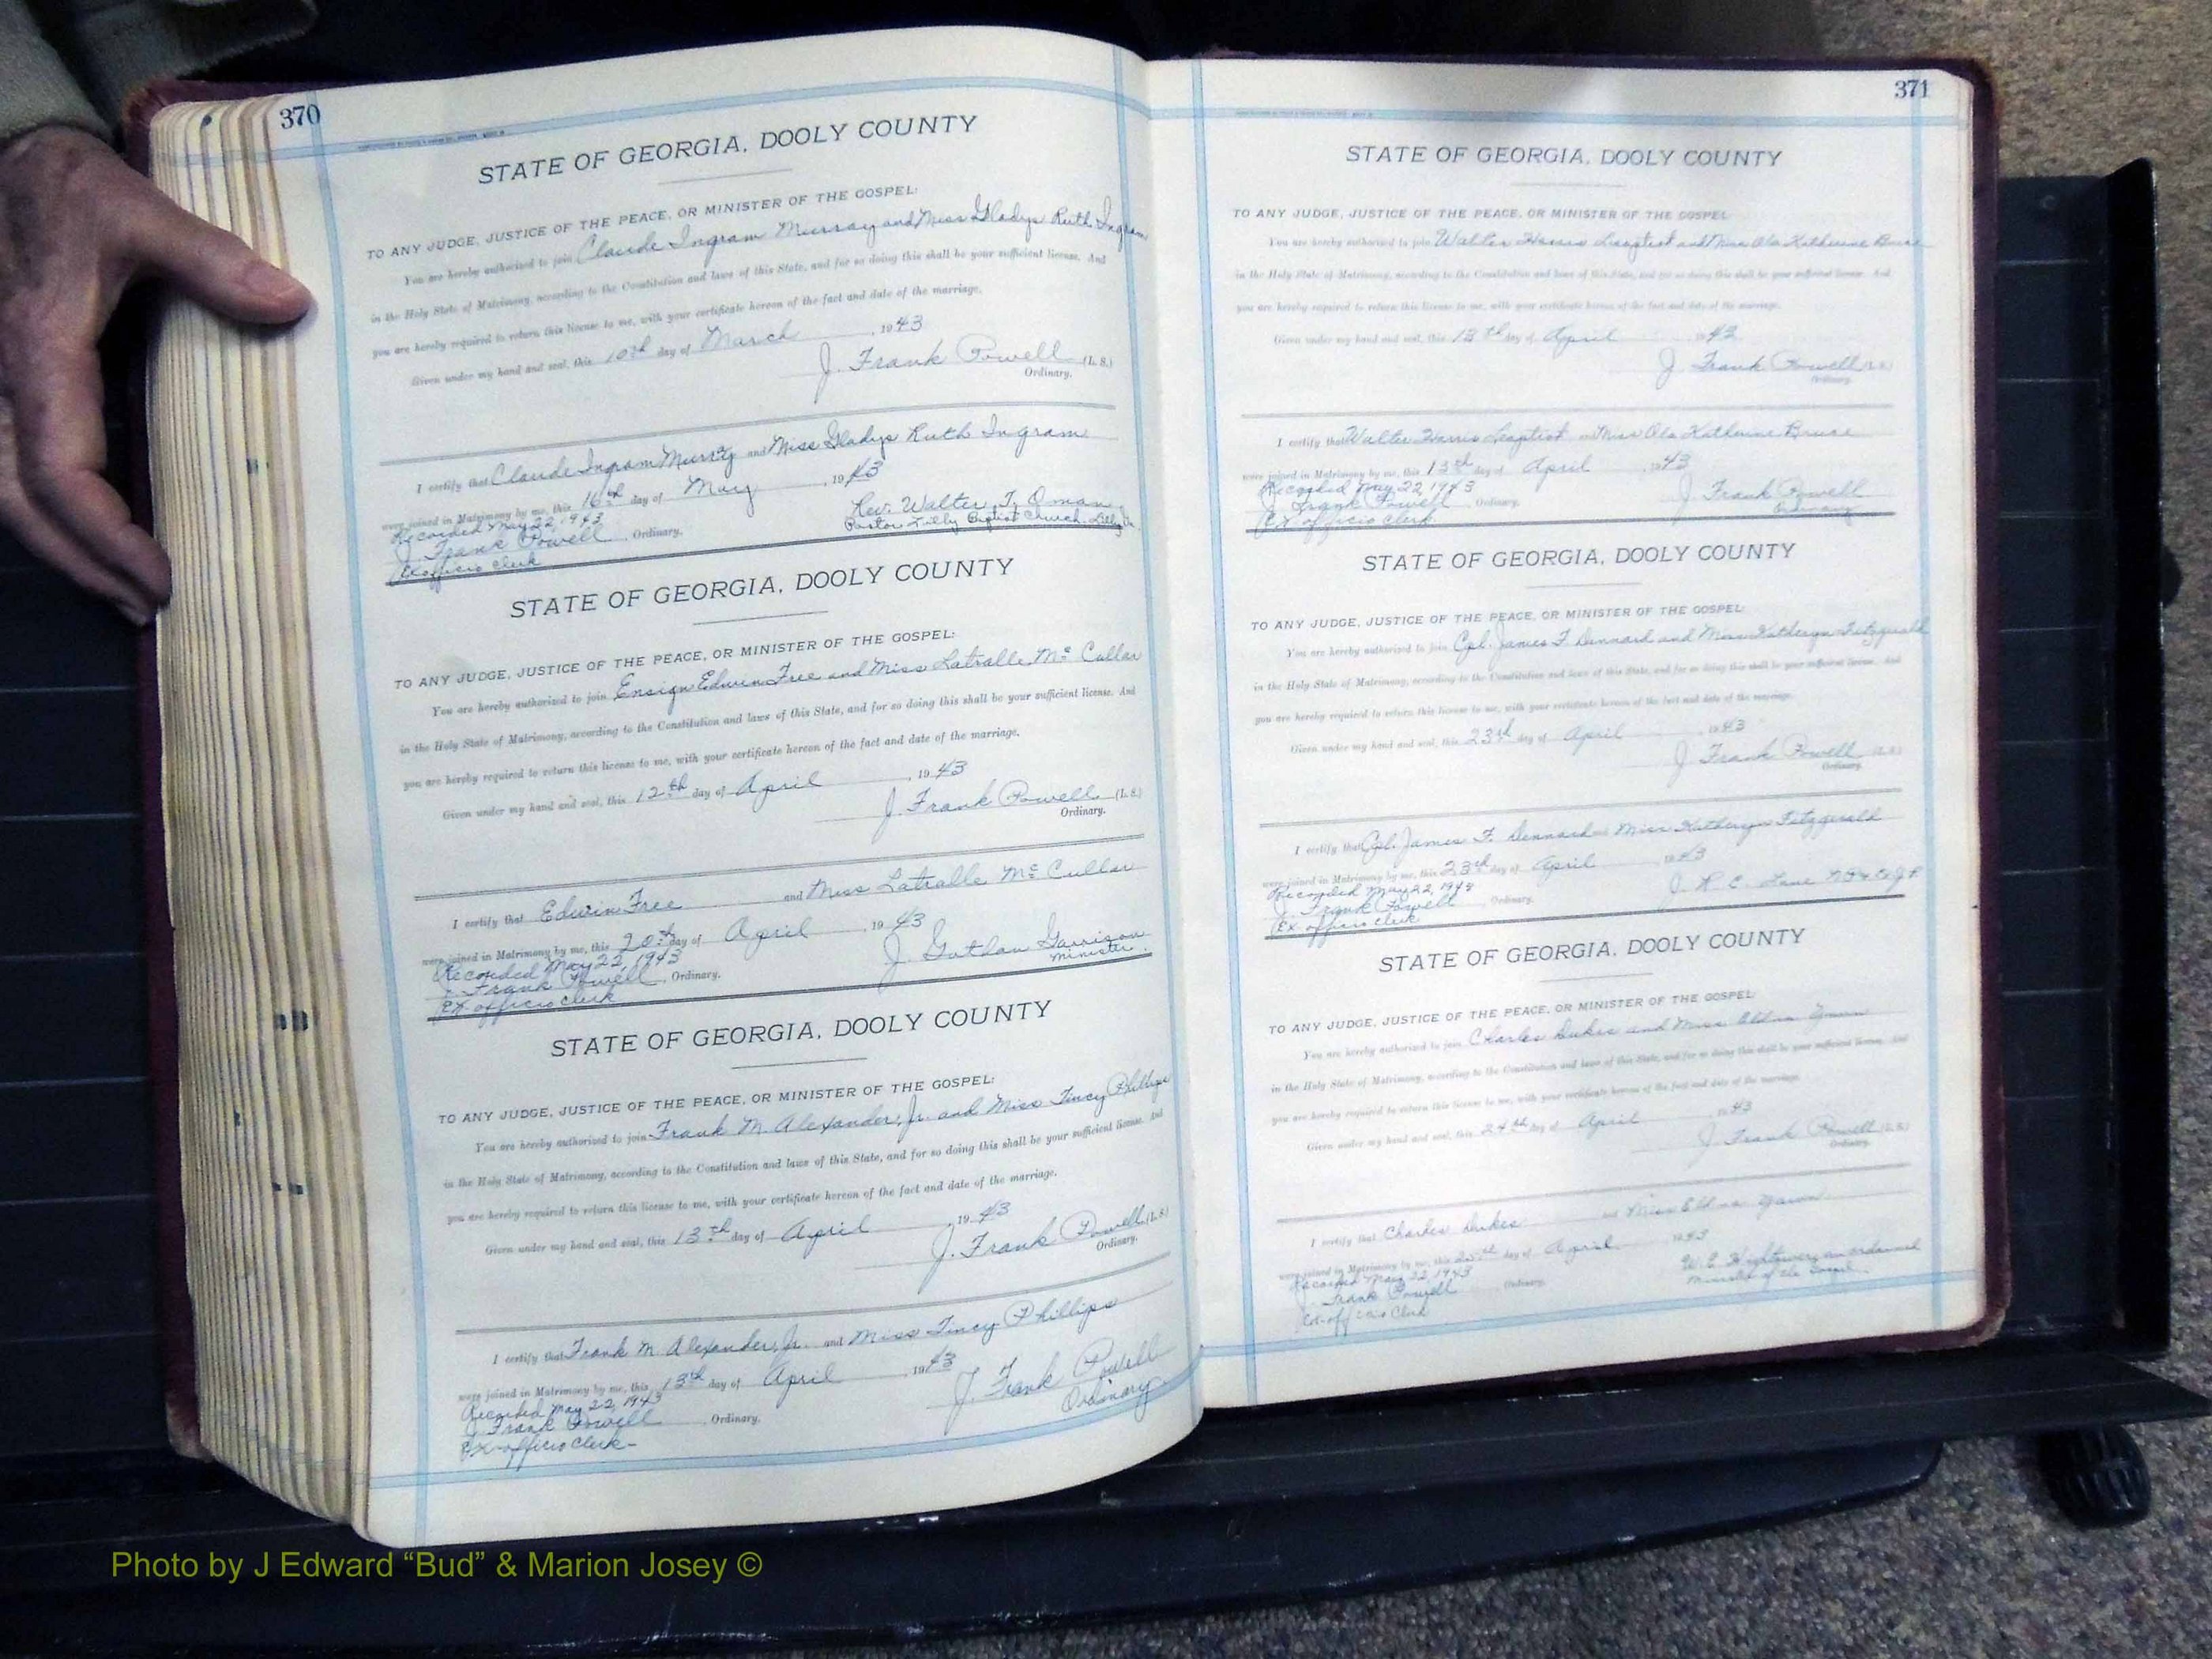 370
STATE OF GEORGIA, DOOLY COUNTY
TO ANY JUDGE, JUSTICE OF THE PEACE, OR MINISTER OF THE GOSPEL:
You are hereby authorized to join Claude Ingram Murray and Miss Gladys Ruth Ingram
in the Holy State of Matrimony, according to the Constitution and laws of this State, and for so doing this shall be your sufficient license. And
you are hereby required to return this license to me, with your certificate hereon of the fact and date of the marriage.
Given under my hand and seal, this 10th day of March, 1943
J. Frank Powell (L. S.)
Ordinary.
I certify that Claude Ingram Murray and Miss Gladys Ruth Ingram
were joined in Matrimony by me, this 16th day of May, 1943
Recorded May 22, 1943
Rev. Walter J.
J. Frank Powell, Ordinary.
Pastor Lilly Baptist Church, Lilly, Ga.
Ex officio clerk
STATE OF GEORGIA, DOOLY COUNTY
TO ANY JUDGE, JUSTICE OF THE PEACE, OR MINISTER OF THE GOSPEL:
You are hereby authorized to join Ensign Edwin Free and Miss Latralle McCullar
in the Holy State of Matrimony, according to the Constitution and laws of this State, and for so doing this shall be your sufficient license. And
you are hereby required to return this license to me, with your certificate hereon of the fact and date of the marriage.
Given under my hand and seal, this 12th day of April, 1943
J. Frank Powell (L. S.)
Ordinary.
I certify that Edwin Free and Miss Latralle McCullar
were joined in Matrimony by me, this 20th day of April, 1943
Recorded May 22, 1943
J. Garrison
Minister.
J. Frank Powell, Ordinary.
Ex-officio clerk
STATE OF GEORGIA, DOOLY COUNTY
TO ANY JUDGE, JUSTICE OF THE PEACE, OR MINISTER OF THE GOSPEL:
You are hereby authorized to join Frank M. Alexander, Jr. and Miss Tincy Phillips
in the Holy State of Matrimony, according to the Constitution and laws of this State, and for so doing this shall be your sufficient license. And
you are hereby required to return this license to me, with your certificate hereon of the fact and date of the marriage.
Given under my hand and seal, this 13th day of April, 1943
J. Frank Powell (L. S.)
Ordinary.
I certify that Frank M. Alexander, Jr. and Miss Tincy Phillips
were joined in Matrimony by me, this 13th day of April, 1943
Recorded May 22, 1943
J. Frank Powell
Ordinary
J. Frank Powell, Ordinary.
Ex-officio Clerk-
371
STATE OF GEORGIA, DOOLY COUNTY
TO ANY JUDGE, JUSTICE OF THE PEACE, OR MINISTER OF THE GOSPEL:
You are hereby authorized to join Walter Harris Leaptrot and Miss Ola Katherine Bruce
in the Holy State of Matrimony, according to the Constitution and laws of this State, and for so doing this shall be your sufficient license. And
you are hereby required to return this license to me, with your certificate hereon of the fact and date of the marriage.
Given under my hand and seal, this 13th day of April 1943
J. Frank Powell (L. S.)
Ordinary.
I certify that Walter Harris Leaptrot and Miss Ola Katherine Bruce
were joined in Matrimony by me, this 13th day of April, 1943
Recorded May 22, 1943
J. Frank Powell
Ordinary
J. Frank Powell, Ordinary.
Ex officio clerk
STATE OF GEORGIA, DOOLY COUNTY
TO ANY JUDGE, JUSTICE OF THE PEACE, OR MINISTER OF THE GOSPEL:
You are hereby authorized to join Cpl. James F. Dennard and Miss Katheryn Fitzgerald
in the Holy State of Matrimony, according to the Constitution and laws of this State, and for so doing this shall be your sufficient license. And
you are hereby required to return this license to me, with your certificate hereon of the fact and date of the marriage.
Given under my hand and seal, this 23rd day of April, 1943
J. Frank Powell (L. S.)
Ordinary.
I certify that Cpl. James F. Dennard and Miss Katheryn Fitzgerald
were joined in Matrimony by me, this 23rd day of April, 1943
Recorded May 22, 1943
J. R. C. Lane
J. Frank Powell, Ordinary.
Ex-officio clerk
STATE OF GEORGIA, DOOLY COUNTY
TO ANY JUDGE, JUSTICE OF THE PEACE, OR MINISTER OF THE GOSPEL:
You are hereby authorized to join Charles Dukes and Miss Yawn
in the Holy State of Matrimony, according to the Constitution and laws of this State, and for so doing this shall be your sufficient license. And
you are hereby required to return this license to me, with your certificate hereon of the fact and date of the marriage.
Given under my hand and seal, this 24th day of April, 1943
J. Frank Powell (L. S.)
Ordinary.
I certify that Charles Dukes and Miss Yawn
were joined in Matrimony by me, this 25th day of April 1943
Recorded May 22, 1943
W. C. Hightower, an ordained
Minister of the Gospel.
J. Frank Powell, Ordinary.
Ex-officio Clerk
Photo by J Edward “Bud” & Marion Josey ©